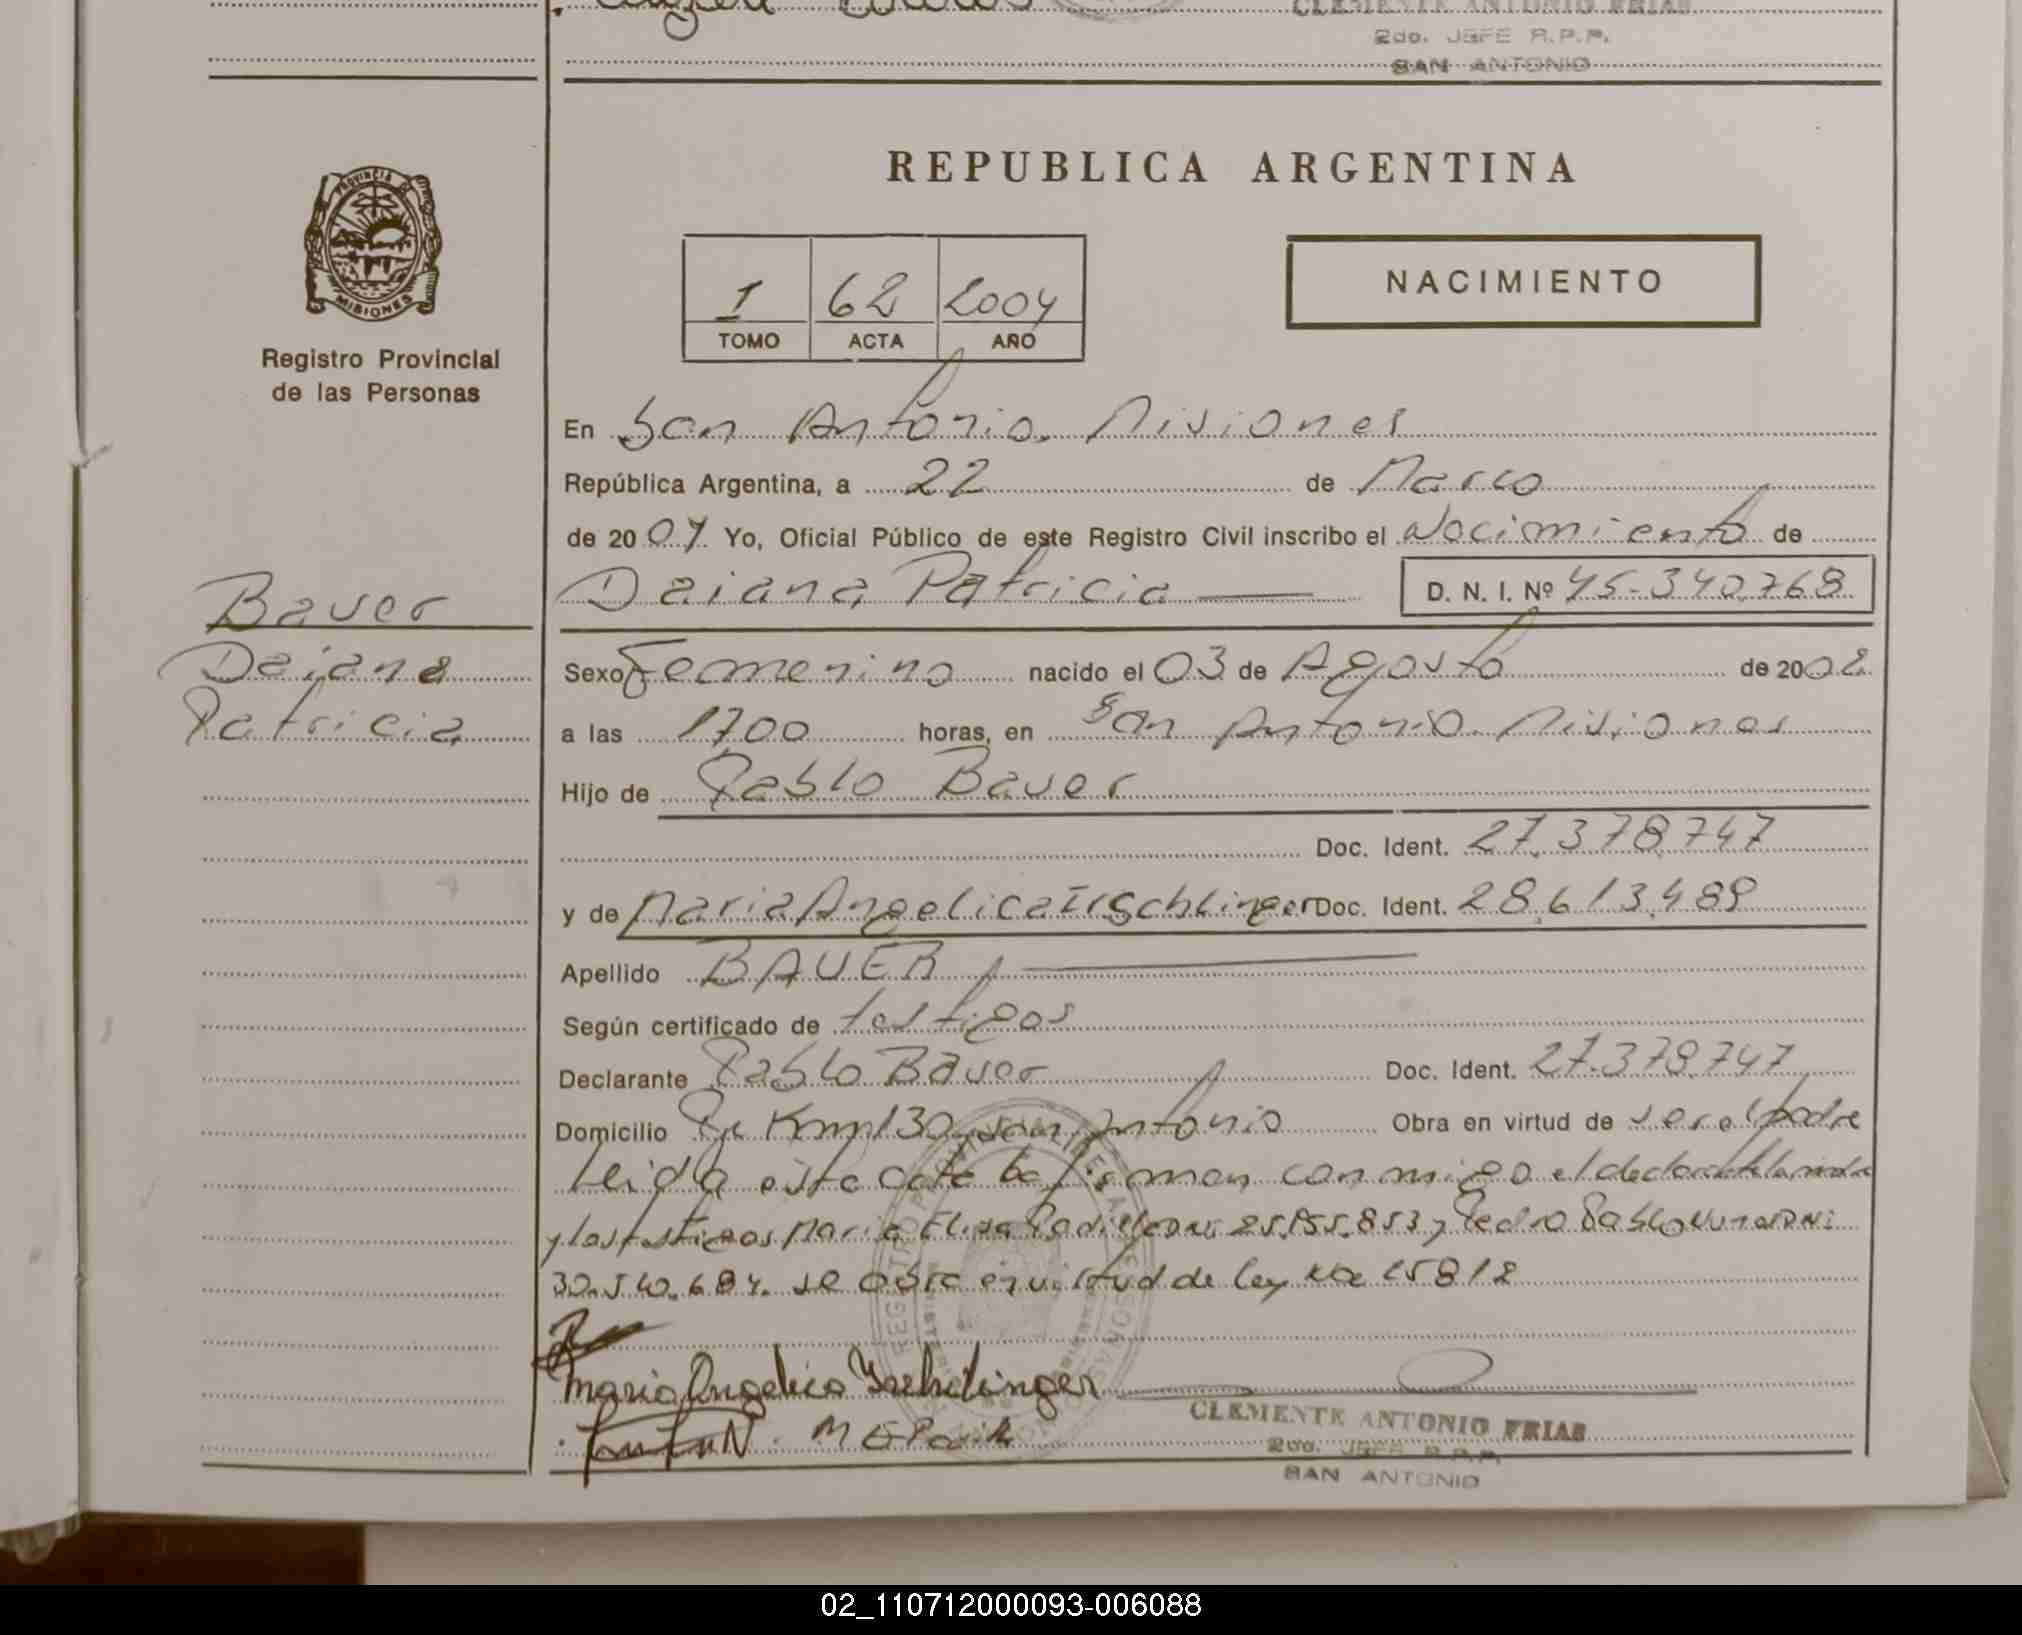 CLEMENTE ANTONIO FRIAS
2do. JEFE R.P.P.
SAN ANTONIO
PROVINCIA DE
MISIONES
Registro Provincial
de las Personas
REPUBLICA ARGENTINA
1 62 2004
TOMO ACTA AÑO
NACIMIENTO
En San Antonio. Misiones
República Argentina, a 22 de Marco
de 20 04 Yo, Oficial Público de este Registro Civil inscribo el Nacimiento de
Daiana Patricia D. N. I. Nº 45.340.768
Bauer
Daiana
Patricia
Sexo Femenino nacido el 03 de Agosto de 2002
a las 1700 horas, en San Antonio. Misiones
Hijo de Pablo Bauer
Doc. Ident. 27.378.747
y de Maria Angelica Irschlinger Doc. Ident. 28.613.489
Apellido BAUER
Según certificado de testigos
Declarante Pablo Bauer Doc. Ident. 27.378.747
Domicilio Km 130 San Antonio Obra en virtud de ser el padre
Leida este acta la firman conmigo el declarante la madre
y los testigos Maria Elisa Padilla DNI. 25.155.853 y Pedro Pablo DNI:
30.540.684. se obra en virtud de ley 25812
Maria Angelica Irschlinger
CLEMENTE ANTONIO FRIAS
2do. JEFE R.P.P.
SAN ANTONIO
02_110712000093-006088